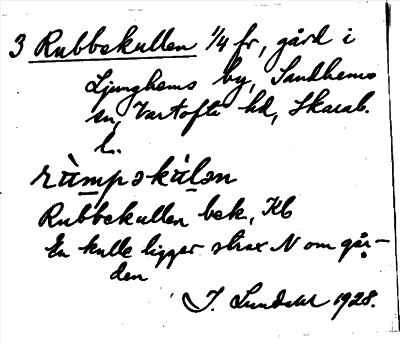 3 Rubbekullen 1/4 fr, gård i
Ljunghems by, Sandhems
sn, Vartofta hd, Skarab.
l.
ràmpəkàlən
Rubbekullen bek, Kb
En kulle ligger strax N om går-
den
J. Lundahl 1928.